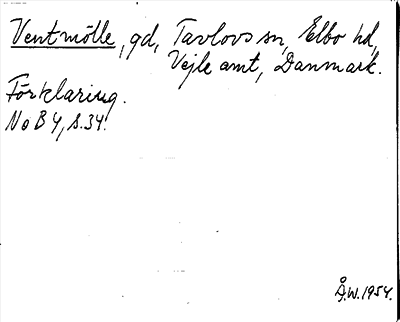 Ventmölle, gd, Tavlovs sn, Elbo hd,
Vejle amt, Danmark.
Förklaring.
NoB 4, s. 34.
Å.W. 1954.